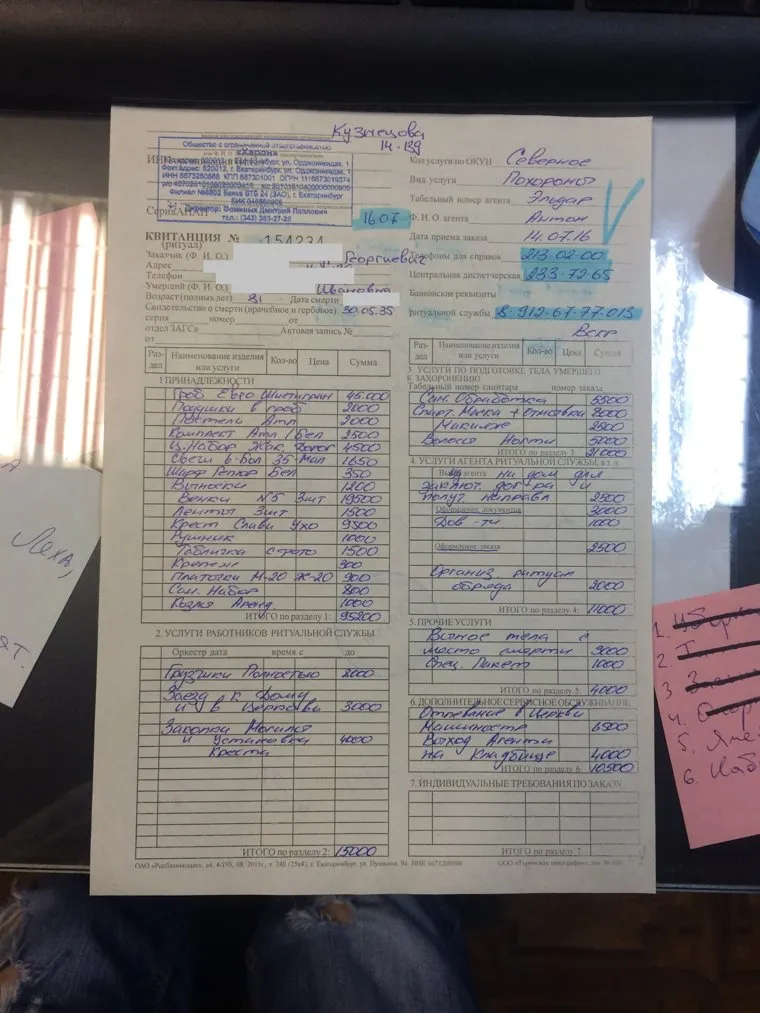 Кузнецова
14-139
Общество с ограниченной ответственностью
«Харон»
620012, г. Екатеринбург, ул. Орджоникидзе, 1
Факт.Адрес: 620012, г. Екатеринбург, ул. Орджоникидзе, 1
Филиал №6602 Банк ВТБ 24 (ЗАО), г. Екатеринбург
Директор: Фоминых Дмитрий Павлович
тел.: (343) 383-27-28
16.07
КВИТАНЦИЯ № 154234
(ритуал)
Заказчик (Ф. И. О.) Георгиевич
Адрес
Телефон
Умерший (Ф. И. О.) Ивановна
Возраст (полных лет) 81 Дата смерти
Свидетельство о смерти (врачебное и гербовое) 30.05.35
серия номер от
отдел ЗАГСа Актовая запись №
от
Раздел Наименование изделия или услуги Кол-во Цена Сумма
1 ПРИНАДЛЕЖНОСТИ
Гроб Евро 45.000
Подушка в гроб 2000
Постель Атл 2000
Комплект Атл/Бел 2500
Ц.Набор 4500
Свечи в-Бол 35-Мал 1650
Шарф Бел 350
Выноски 1200
Венки №5 3шт 19500
Ленты 3шт 1500
Крест 9500
Рушник 1000
Табличка с фото 1500
Крепеж 300
Платочки М-20 Ж-20 900
Сан. Набор 800
Козлы Аренд. 1000
ИТОГО по разделу 1: 95200
2. УСЛУГИ РАБОТНИКОВ РИТУАЛЬНОЙ СЛУЖБЫ
Оркестр дата время с до
Грузчики Полностью 8000
Заезд к Дому
и в Церковь 3000
Закопка Могилы
и Установка 4000
Креста
ИТОГО по разделу 2: 15000
Код услуги по ОКУН Северное
Вид услуги Похороны
Табельный номер агента Эльдар
Ф. И. О. агента Антон
Дата приема заказа 14.07.16
Телефоны для справок 213-02-00
Центральная диспетчерская 233-72-65
Банковские реквизиты
ритуальной службы 8-912-67-77-013
Вскр
Раздел Наименование изделия или услуги Кол-во Цена Сумма
3 УСЛУГИ ПО ПОДГОТОВКЕ ТЕЛА УМЕРШЕГО
К ЗАХОРОНЕНИЮ
Табельный номер санитара номер заказа
Сан. Обработка 5500
Спирт. Маска + Отмывка 8000
Макияж 2500
Волосы Ногти 5000
ИТОГО по разделу 3 21000
4. УСЛУГИ АГЕНТА РИТУАЛЬНОЙ СЛУЖБЫ, в т. ч.
Выезд агента на дом для
заключ. дог-ра и
получ направл 2500
Оформление документов 3000
Дов-ти 1000
Оформление заказа 2500
Организ. ритуал
обряда 2000
ИТОГО по разделу 4: 11000
5. ПРОЧИЕ УСЛУГИ
Вывоз тела с
место смерти 3000
Спец. Пакет 1000
ИТОГО по разделу 5. 4000
6. ДОПОЛНИТЕЛЬНОЕ СЕРВИСНОЕ ОБСЛУЖИВАНИЕ
Отпевание в Церкви
6500
Выход Агента
на Кладбище 4000
ИТОГО по разделу 6: 10500
7. ИНДИВИДУАЛЬНЫЕ ТРЕБОВАНИЯ ПО ЗАКАЗУ
ИТОГО по разделу 7
г. Екатеринбург, ул. Пушкина, 9а
Леха,
1.
2.
3
4.
5.
6.